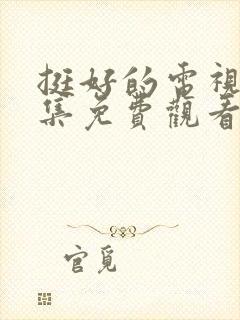 挺好的電視
集免費觀看
官覓